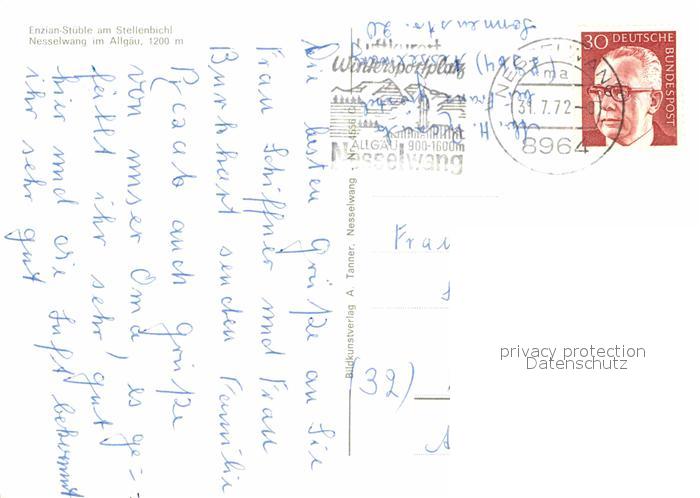 Enzian-Stuble am Stellenbichl
Nesselwang im Allgäu, 1200 m
Die besten Grüße an Sie
Frau Schiffner und Frau
Burkhart senden Familie
auch Grüße
von unser Oma, es ge=
fällt ihr sehr gut
hier und die Luft bekommt
ihr sehr gut
Bildkunstverlag A. Tanner, Nesselwang
Luftkurort
Wintersportplatz
ALLGÄU 900-1600m
Nesselwang
NESSELWANG
ma
31.7.72
8964
30 DEUTSCHE
BUNDESPOST
Sonnenstr. 20
Frau
(32)
privacy protection
Datenschutz